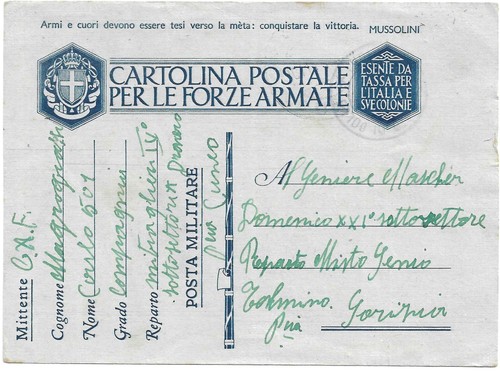 Armi e cuori devono essere tesi verso la mèta: conquistare la vittoria. MUSSOLINI
CARTOLINA POSTALE
PER LE FORZE ARMATE
ESENTE DA
TASSA PER
L'ITALIA E
SVE COLONIE
Mittente G.A.F.
Cognome
Nome Carlo 501
Grado Compagnia
Reparto mitraglieri IX°
sottosettore Dronero
POSTA MILITARE
Cuneo
Al Geniere Maschér
Domenico XXI° sottosettore
Reparto Misto Genio
Tolmino.
Gorizia